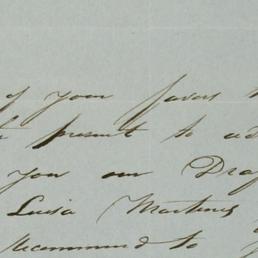 of your favors
present to
you our
Luisa Martinez
Recommend to